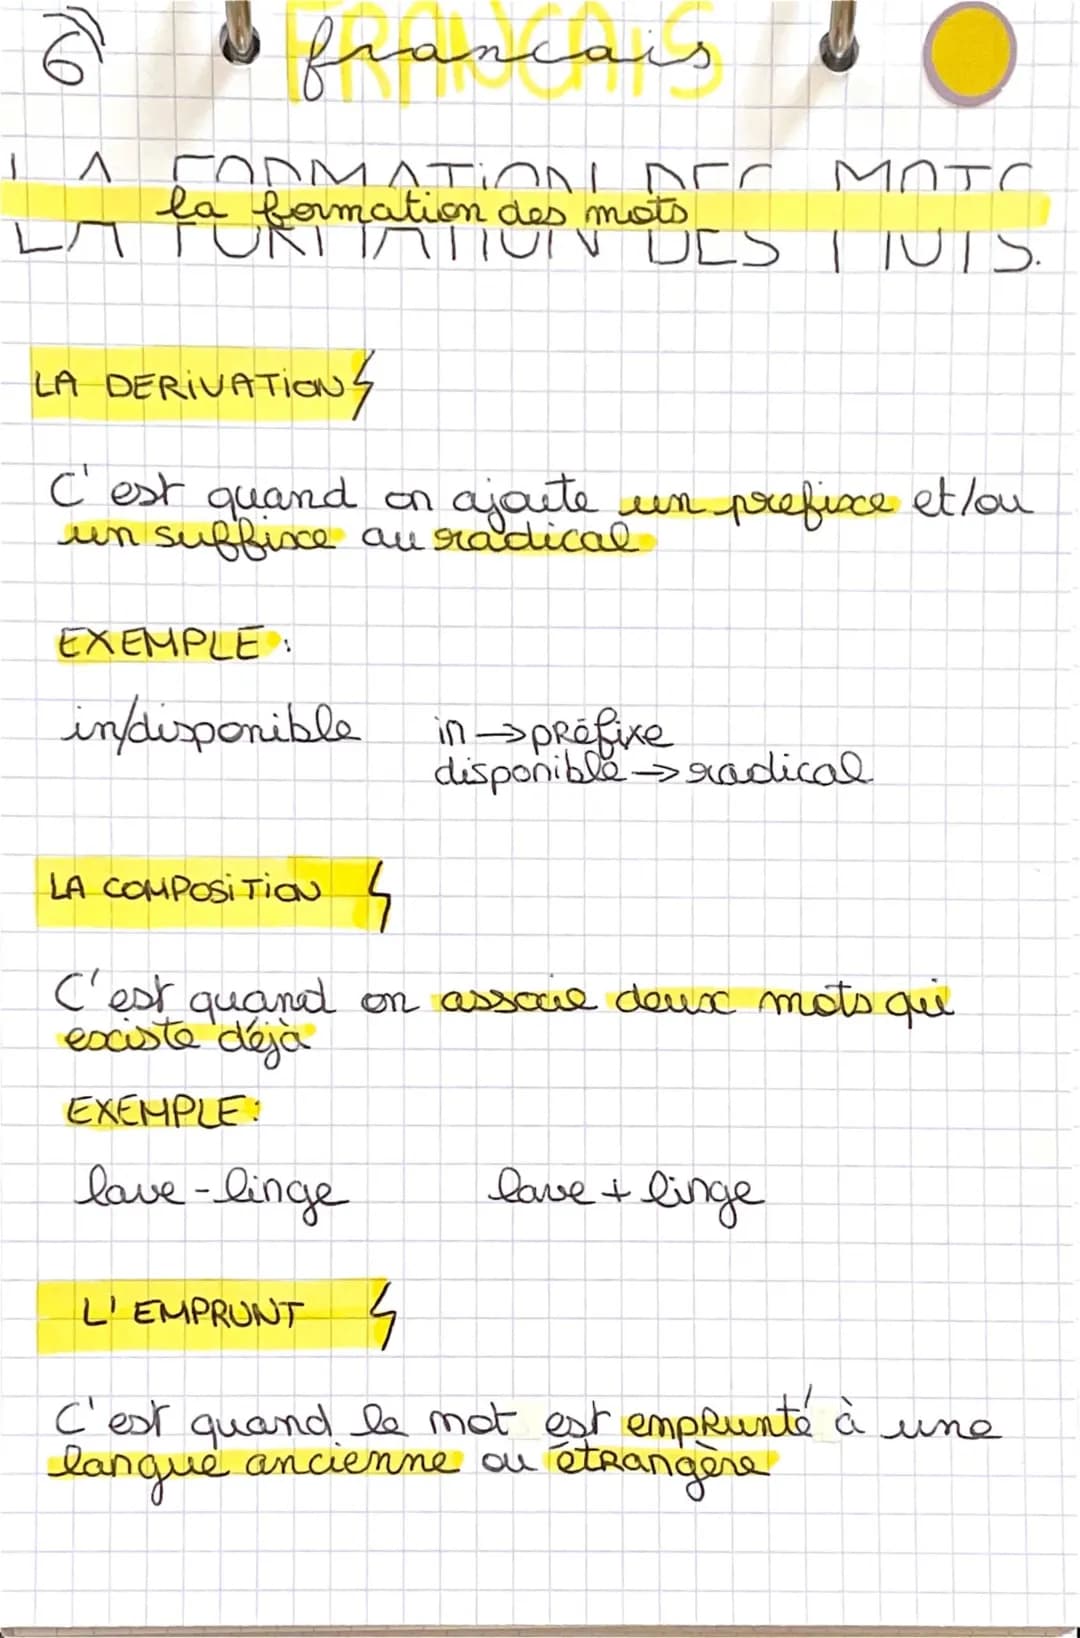 6)
FRANCAIS
francais
LA FORMATION DES MOTS.
la formation des mots
LA DERIVATION
C'est quand on ajoute un prefixe et/ou
un suffixe au radical
EXEMPLE :
in/disponible in → préfixe
disponible → radical
LA COMPOSITION
C'est quand on associe deux mots qui
existe déjà
EXEMPLE :
lave-linge lave + linge
L'EMPRUNT
C'est quand le mot est emprunté à une
langue ancienne ou étrangère